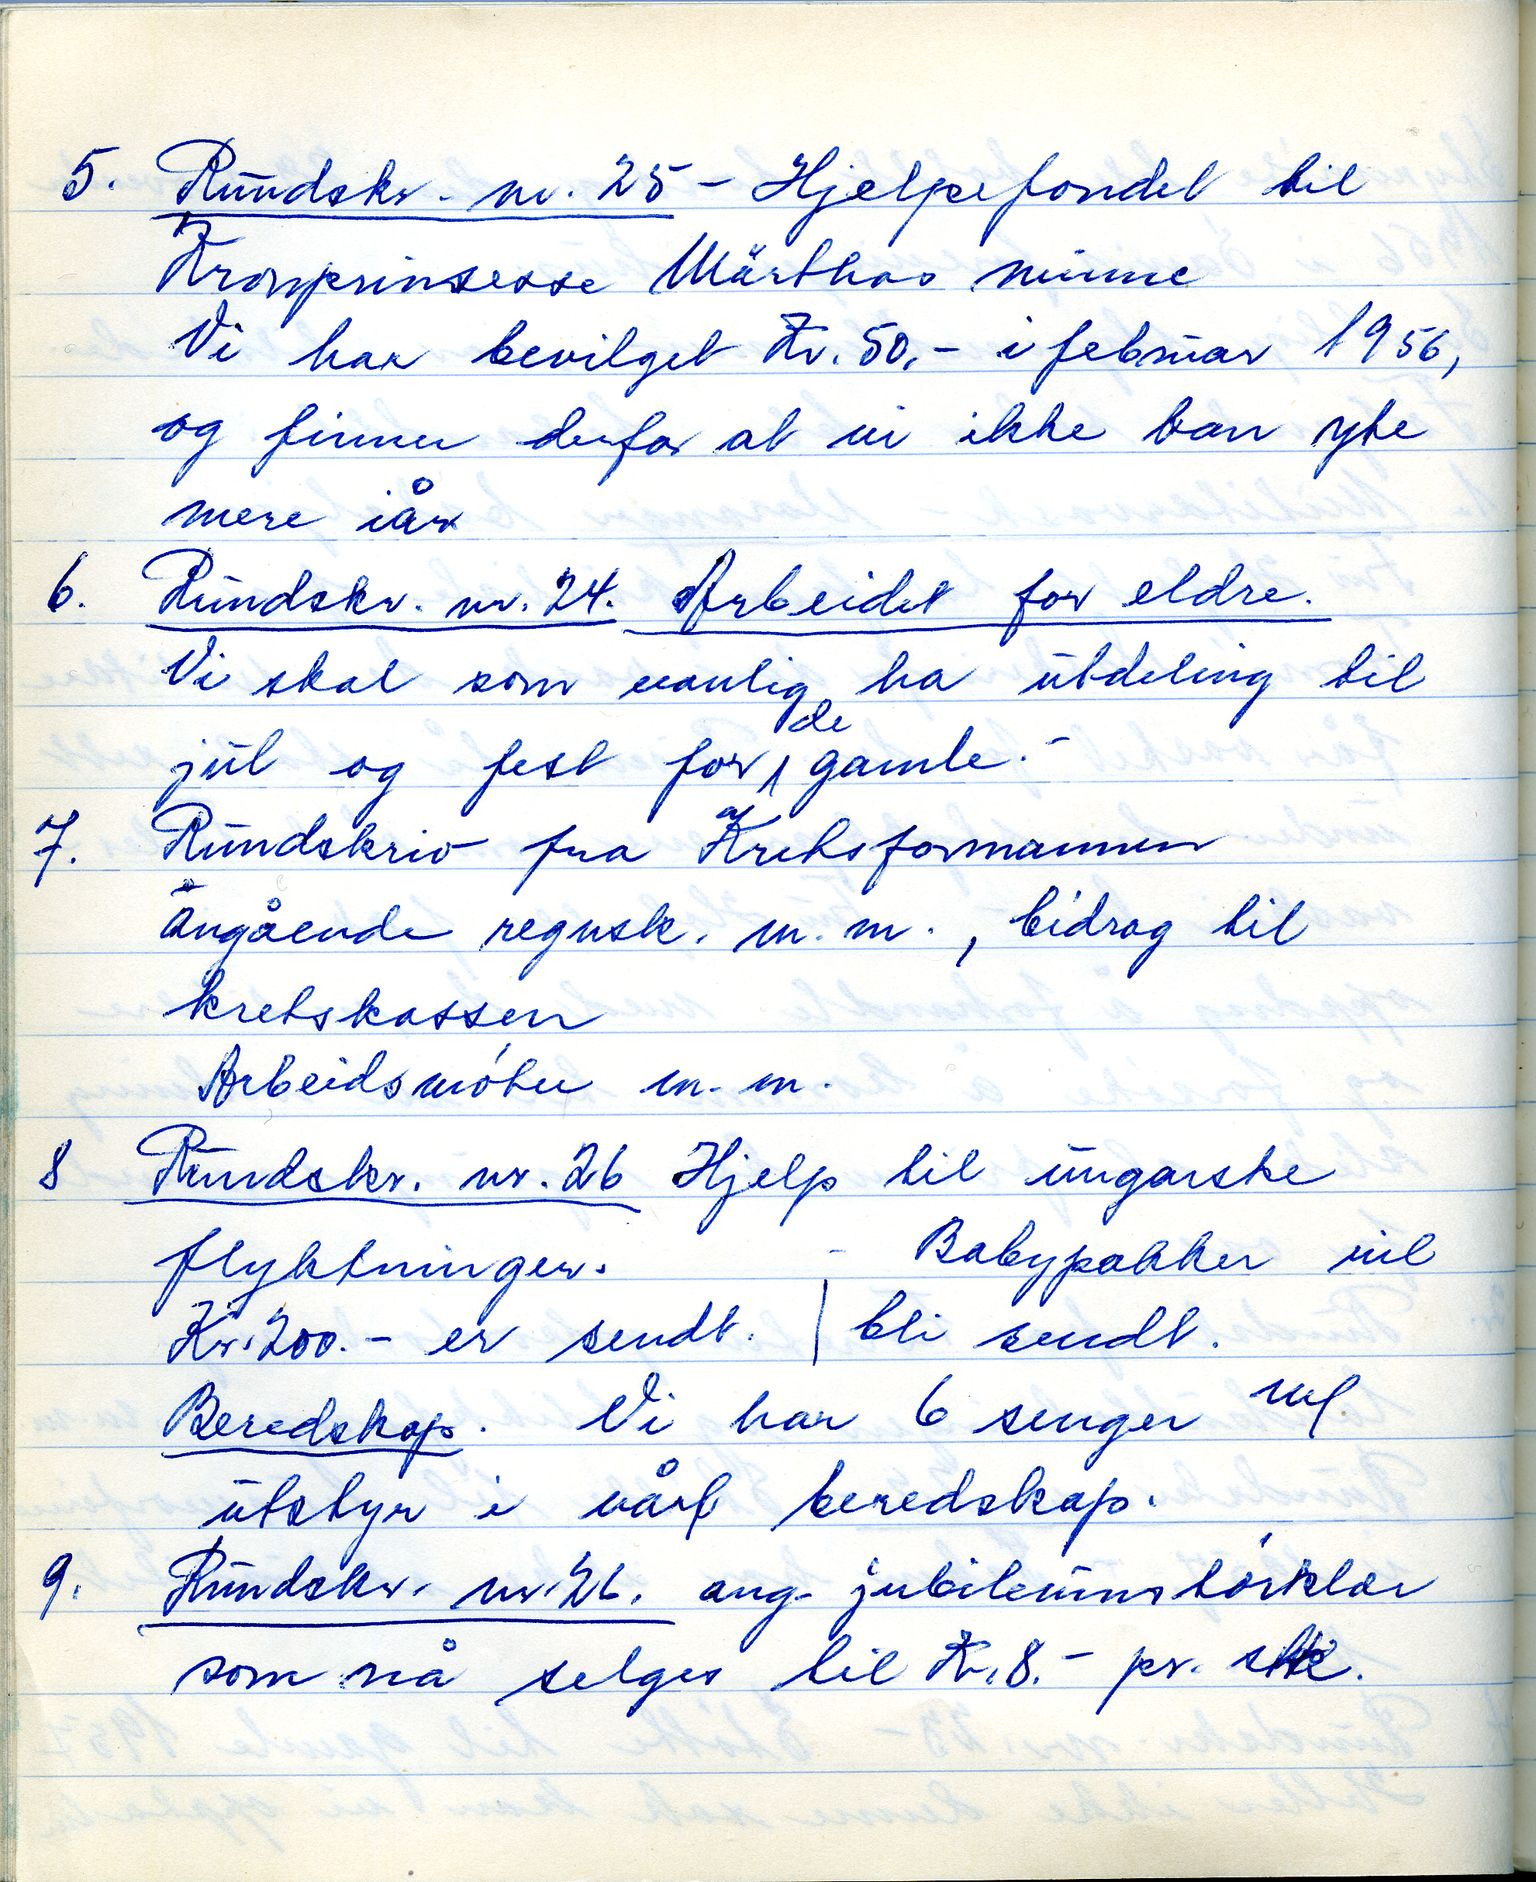 5. Rundskr. nr. 25 - Hjelpefondet til
Kronprinsesse Märthas minne
Vi har bevilget Kr. 50,- i februar 1956,
og finner derfor at vi ikke kan yte
mere iår
6. Rundskr. nr. 24. Arbeidet for eldre.
Vi skal som vanlig ha utdeling til
jul og fest for de gamle.-
7. Rundskriv fra Kretsformannen
angående regnsk. m. m., bidrag til
kretskassen
Arbeidsmöter m. m.
8 Rundskr. nr. 26 Hjelp til ungarske
flyktninger. - Babypakker vil
Kr. 200.- er sendt. | bli sendt.
Beredskap. Vi har 6 senger m/
utstyr i vårt beredskap.
9. Rundskr. nr. 26. ang. jubileumstörklær
som nå selges til Kr. 8.- pr. stk.